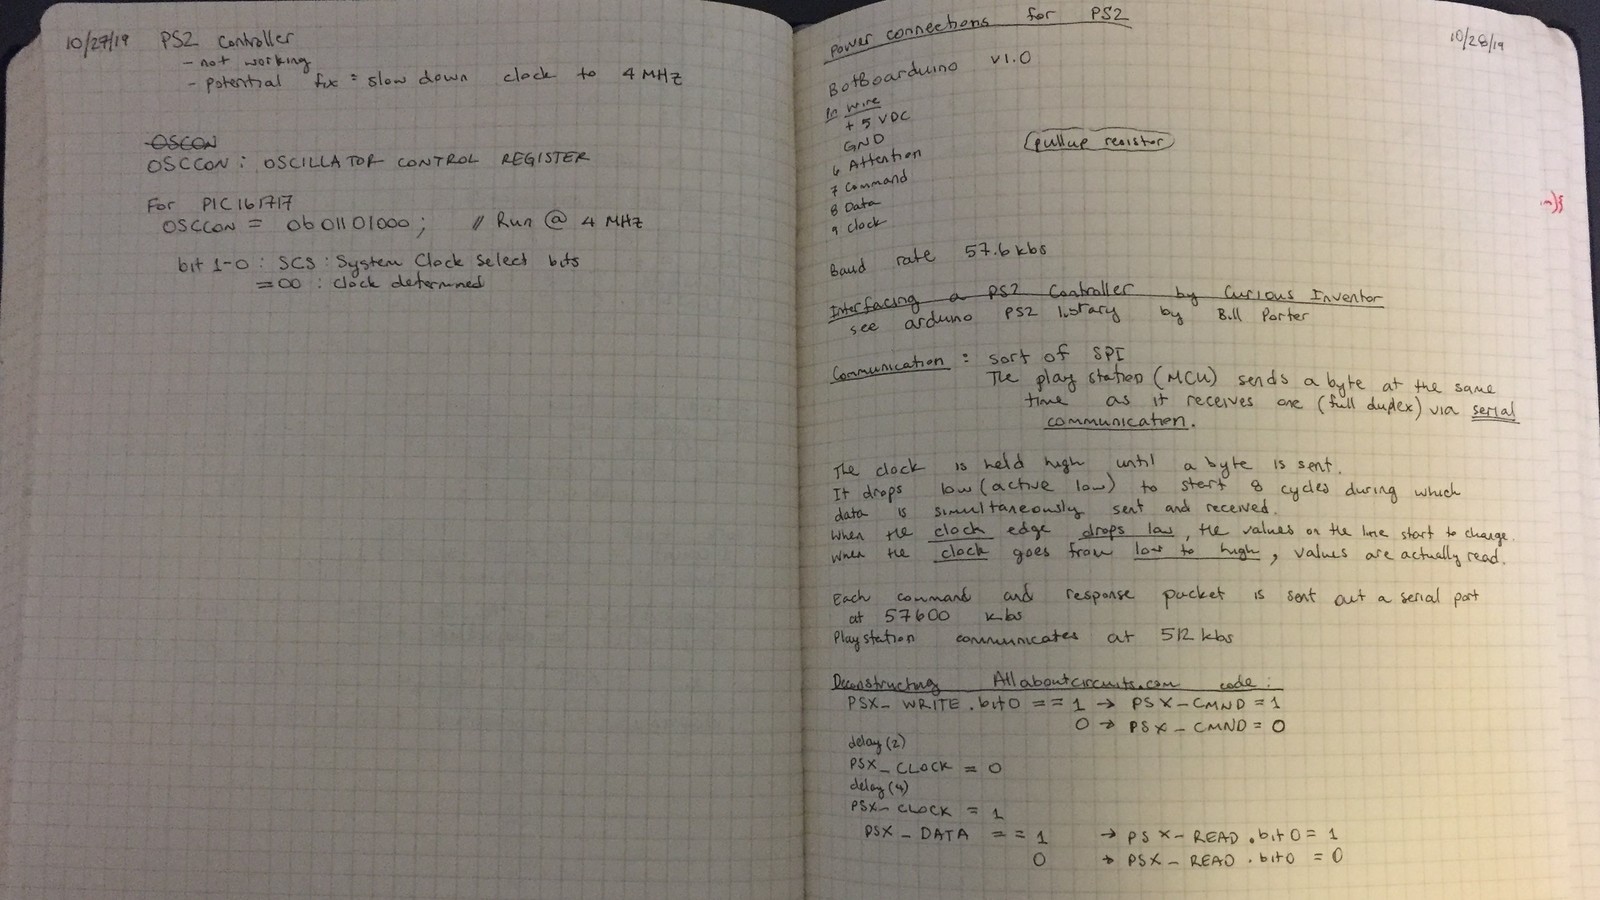 10/27/19 PS2 Controller
- not working
- potential fix : slow down clock to 4 MHz
OSCON
OSCCON : OSCILLATOR CONTROL REGISTER
For PIC16F1717
OSCCON = 0b01101000; // Run @ 4 MHz
bit 1-0 : SCS : System Clock Select bits
= 00 : clock determined
Power connections for PS2
10/28/19
BotBoarduino v1.0
In wire
+ 5 VDC
GND
6 Attention
7 Command
8 Data
9 Clock
pullup resistor
Baud rate 57.6 kbs
Interfacing a PS2 Controller by Curious Inventor
see arduino PS2 library by Bill Porter
Communication : sort of SPI
The play station (MCU) sends a byte at the same
time as it receives one (full duplex) via serial
communication.
The clock is held high until a byte is sent.
It drops low (active low) to start 8 cycles during which
data is simultaneously sent and received.
When the clock edge drops low, the values on the line start to change.
When the clock goes from low to high, values are actually read.
Each command and response packet is sent out a serial port
at 57600 kbs
Playstation communicates at 512 kbs
Deconstructing Allaboutcircuits.com code :
PSX_WRITE.bit0 == 1 → PSX-CMND = 1
0 → PSX-CMND = 0
delay(2)
PSX_CLOCK = 0
delay(4)
PSX-CLOCK = 1
PSX-DATA == 1 → PSX-READ.bit0 = 1
0 → PSX-READ.bit0 = 0